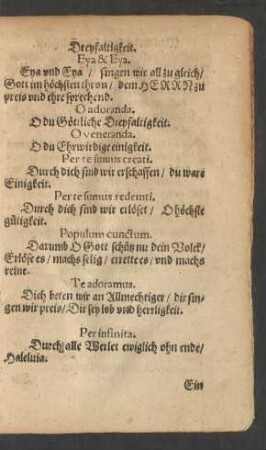 Dreyfaltigkeit.
Eya & Eya.
Eya vnd Eya / singen wir all zu gleich /
Gott im höchsten thron / dem HERRN zu
preis vnd ehre sprechend.
O adoranda.
O du Göttliche Dreyfaltigkeit.
O veneranda.
O du Ehrwirdige einigkeit.
Per te sumus creati.
Durch dich sind wir erschaffen / du wars
Einigkeit.
Per te sumus redemti.
Durch dich sind wir erlöset / O höchste
gütigkeit.
Populum cunctum.
Darumb O Gott schütz nu dein Volck /
Erlöse es / machs selig / errette es / vnd machs
reine.
Te adoramus.
Dich beten wir an Allmechtiger / dir sin-
gen wir preis / Dir sey lob vnd herrligkeit.
Per infinita.
Durch alle Werlet ewiglich ohn ende /
Haleluia.
Ein